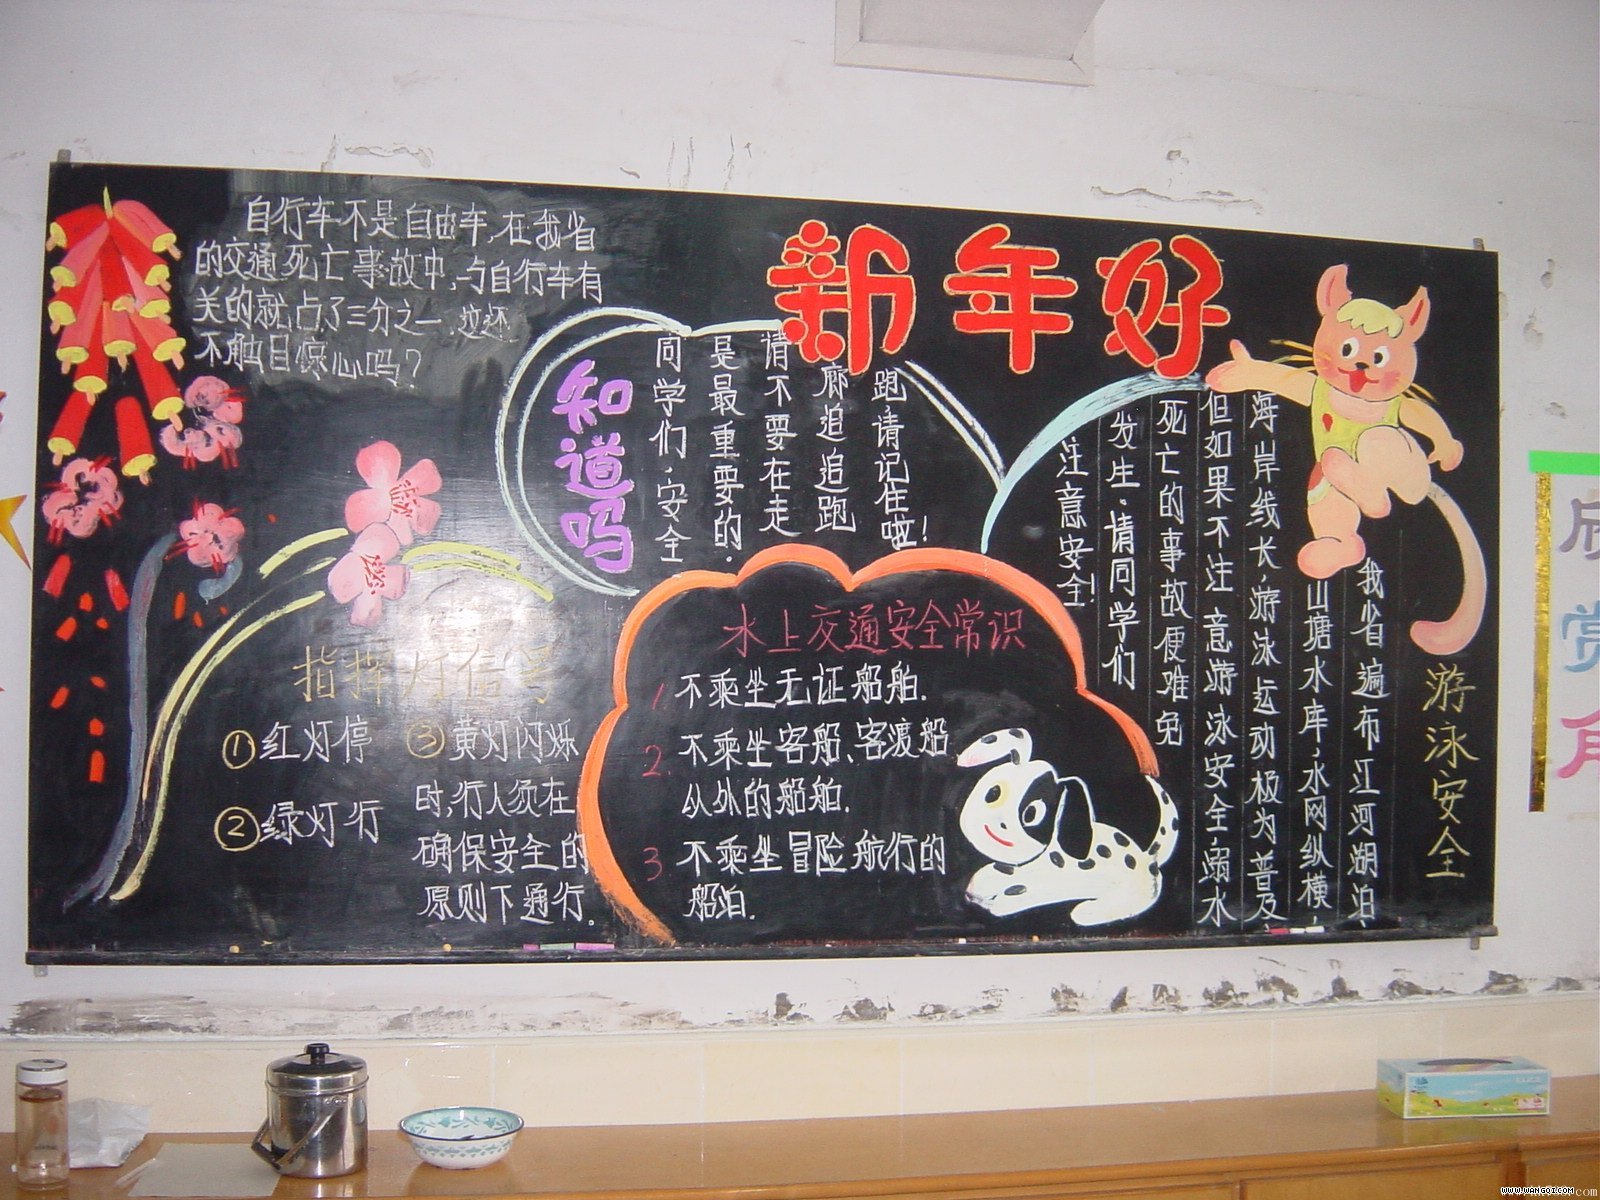 新年好
自行车不是自由车,在我省
的交通死亡事故中,与自行车有
关的就占了三分之一,这还
不触目惊心吗?
知道吗
同学们,安全
是最重要的.
请不要在走
廊追追跑
跑,请记住啦!
指挥灯信号
①红灯停
②绿灯行
③黄灯闪烁
时,行人须在
确保安全的
原则下通行.
水上交通安全常识
1 不乘坐无证船舶.
2. 不乘坐客船、客渡船
以外的船舶.
3 不乘坐冒险航行的
船泊.
游泳安全
我省遍布江河湖泊,
山塘水库,水网纵横,
海岸线长,游泳运动极为普及,
但如果不注意游泳安全,溺水
死亡的事故便难免
发生.请同学们
注意安全!
欣赏角
WWW.WANGQI.COM